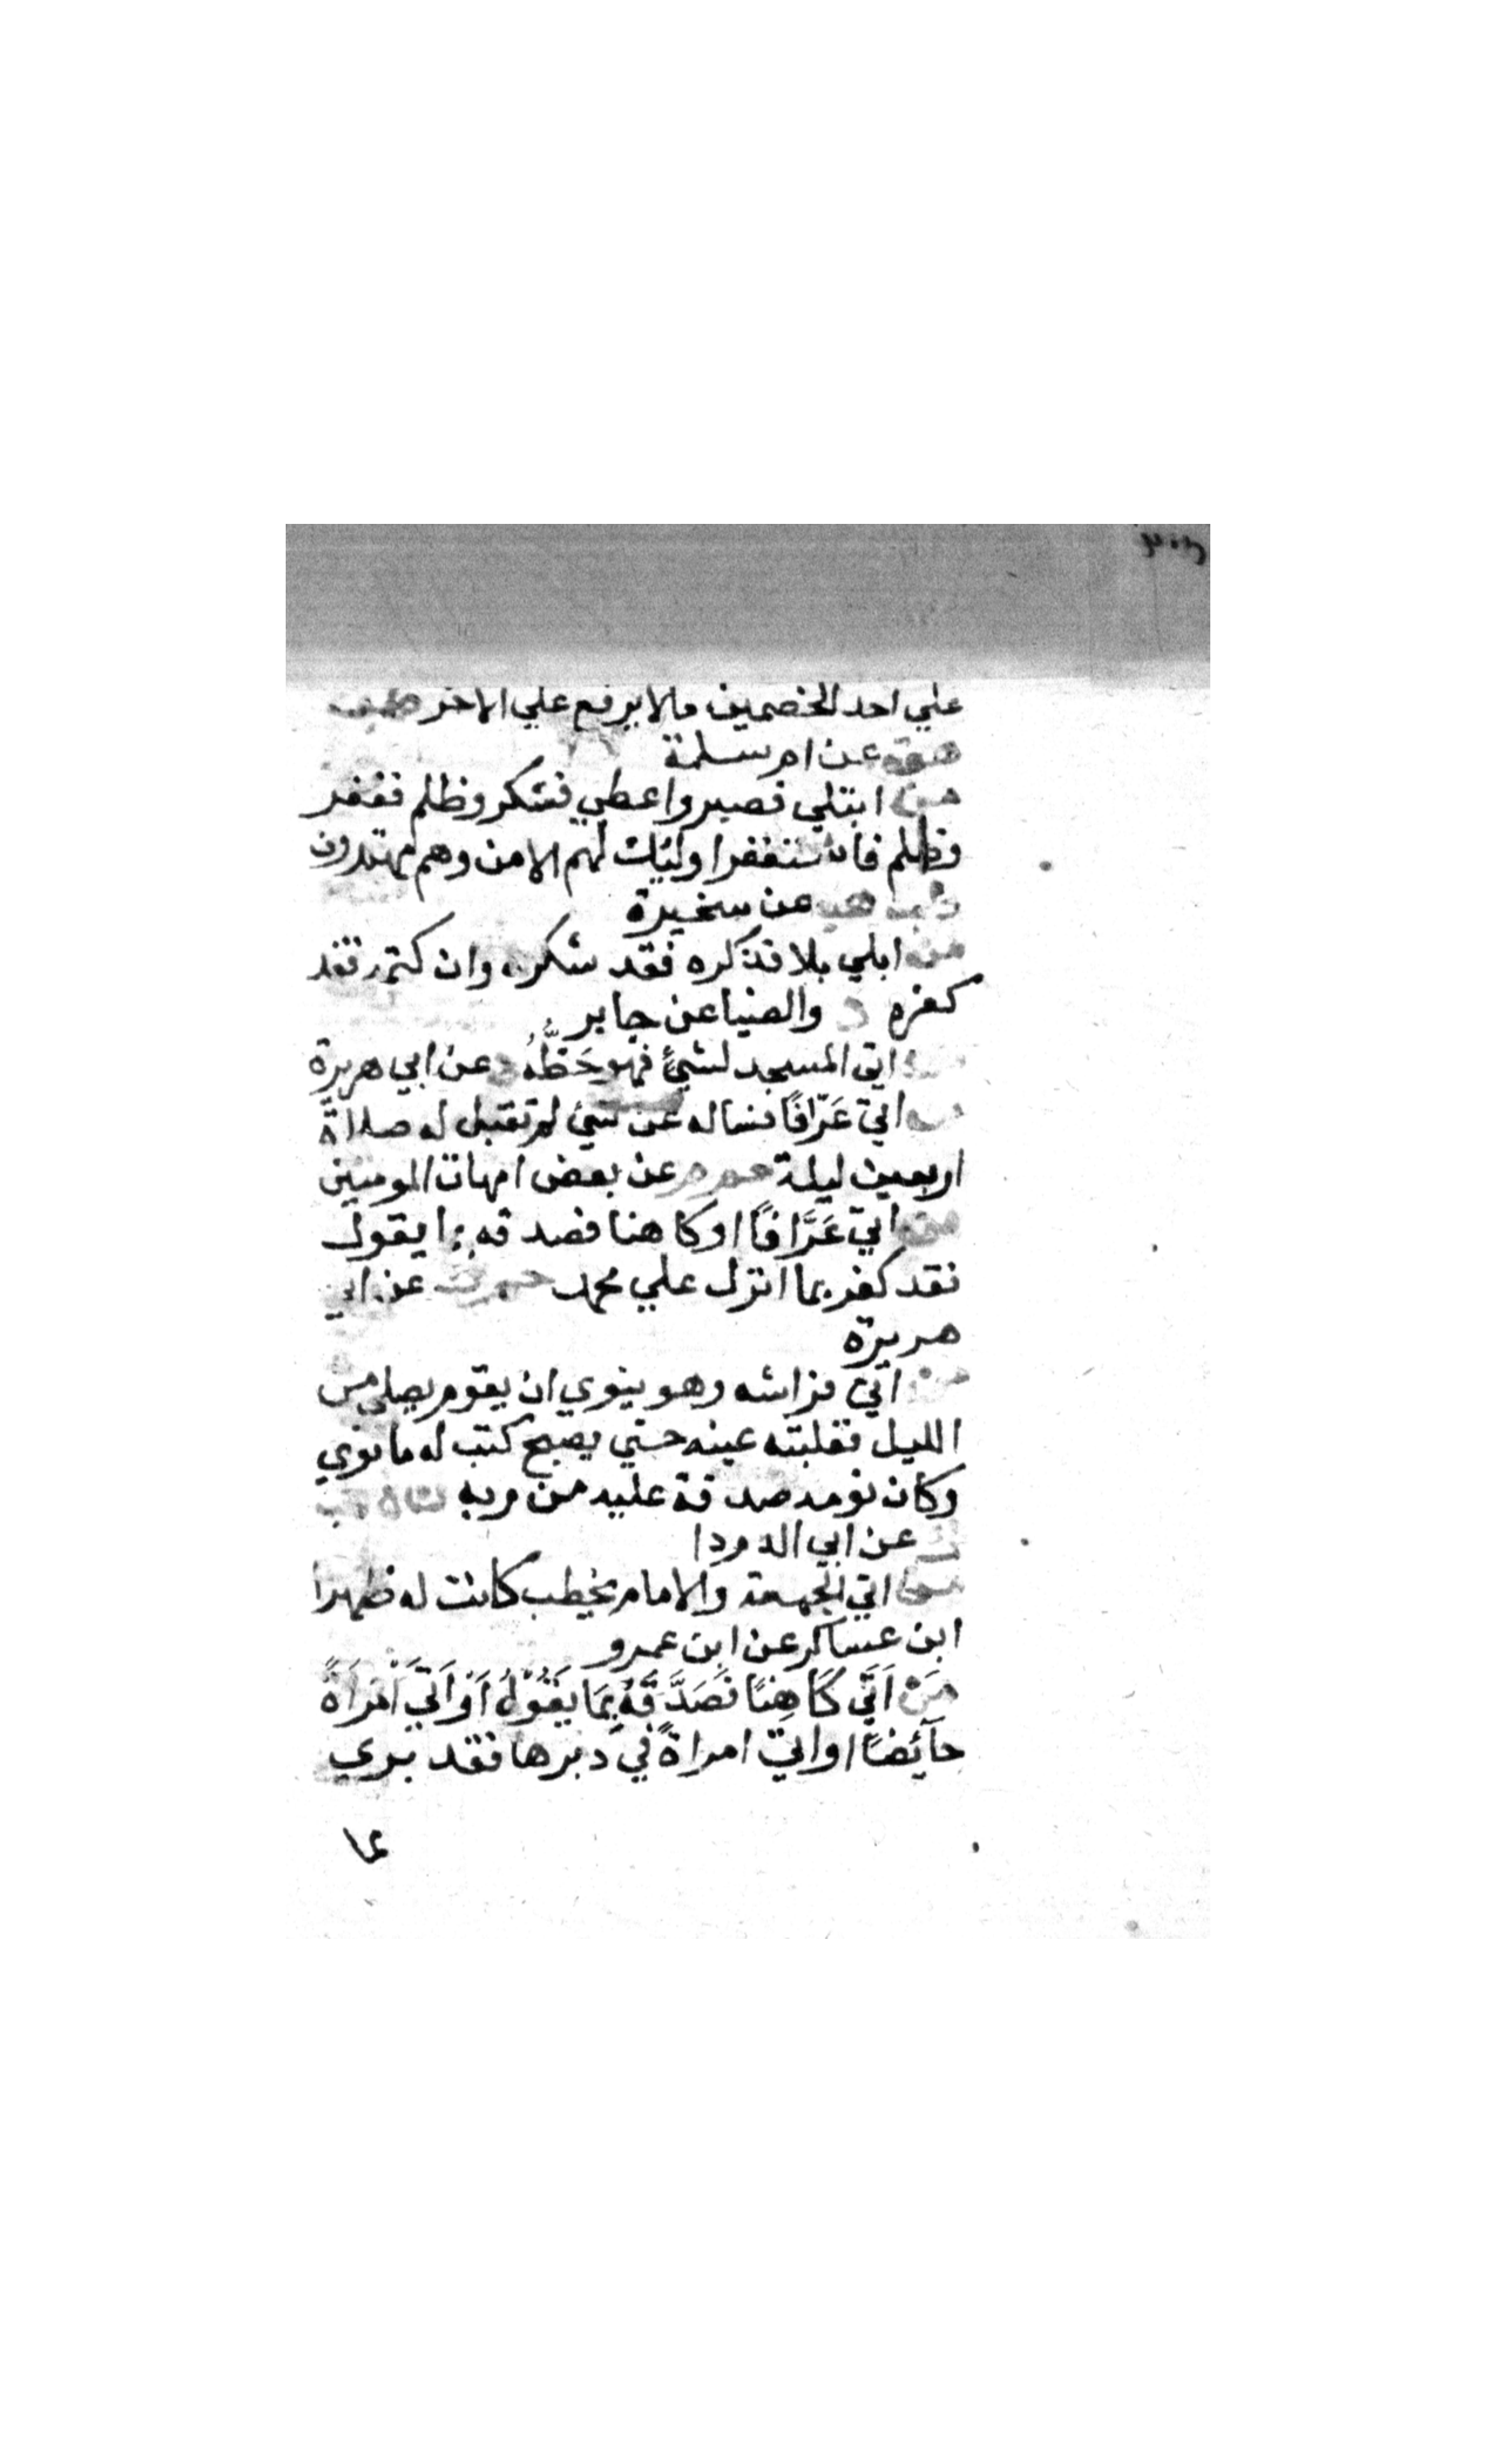 علي احد الخصمين مالا يرفع علي الاخر طب
هق عن ام سلمة
من ابتلي فصبر واعطي فشكر وظلم فغفر
وظلم فاستغفر اوليك لهم الامن وهم مهتدون
طب هب عن سخبرة
من ابلي بلا فذكره فقد شكره وان كتمه فقد
كفره د والضيا عن جابر
من اتي المسجد لشئ فهو حَظُّهُ د عن ابي هريرة
من اتي عَرّافًا فساله عن شئ لم تقبل له صلاة
اربعين ليلة حم م عن بعض امهات المومنين
من اتي عَرَّافًا او كاهنا فصدقه بما يقول
فقد كفر بما انزل علي محمد حم ك عن ابي
هريرة
من اتي فراشه وهو ينوي ان يقوم يصلي من
الليل فغلبته عينه حتي يصبح كتب له ما نوي
وكان نومه صدقة عليه من ربه ن ه حب
ك عن ابي الدردا
من اتي الجمعة والامام يخطب كانت له ظهرا
ابن عساكر عن ابن عمرو
مَنْ اَتَي كَاهِنًا فَصَدَّقَهُ بِمَا يَقُوْلُ اَوْ اَتَي اَمْرَاَةً
حَآئِضًا او اتي امراةً فِي دُبرها فقد بري